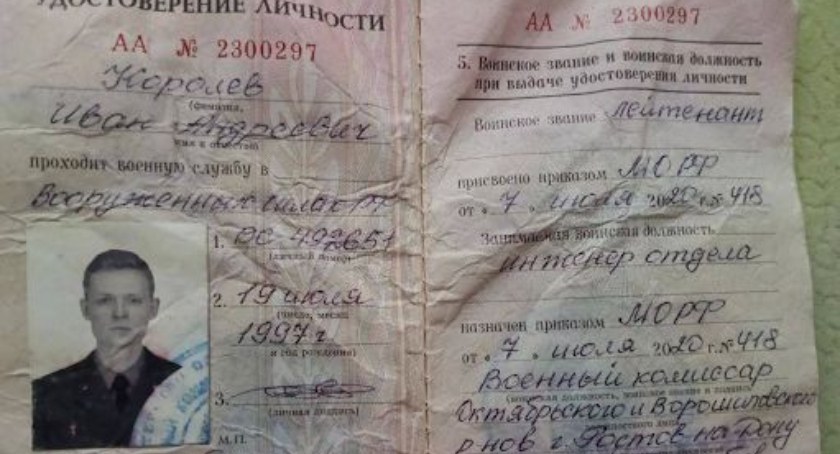 УДОСТОВЕРЕНИЕ ЛИЧНОСТИ
АА № 2300297
Королев
(фамилия,
Иван Андреевич
имя и отчество)
проходит военную службу в
Вооруженных силах РФ
1. РС 492651
(личный номер)
2. 19 июля
(число, месяц
1997 г
и год рождения)
3.
(личная подпись)
М.П.
АА № 2300297
5. Воинское звание и воинская должность
при выдаче удостоверения личности
Воинское звание лейтенант
присвоено приказом МОРФ
от « 7 » июля 2020 г. № 418
Занимаемая воинская должность
инженер отдела
назначен приказом МОРФ
от « 7 » июля 2020 г. № 418
Военный комиссар
Октябрьского и Ворошиловского
р-нов г. Ростов на Дону